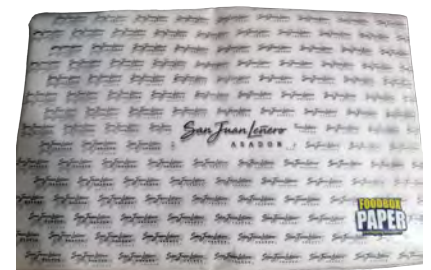 San Juan Leñero
ASADOR
FOODBOX
PAPER